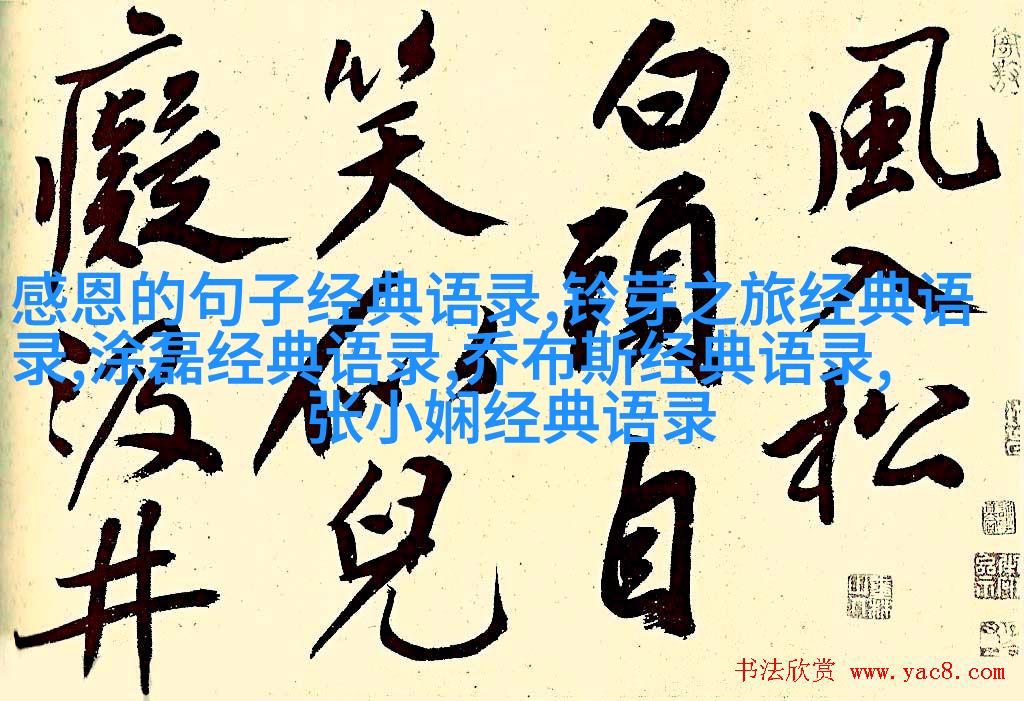 風入松
白頭自
笑似兒
癡汲井
感恩的句子经典语录,铃芽之旅经典语
录,涂磊经典语录,乔布斯经典语录,
张小娴经典语录
书法欣赏 www.yac8.com